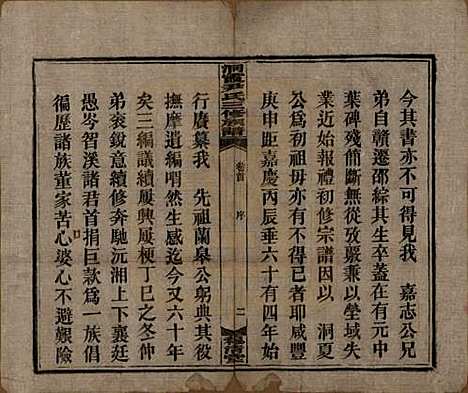 今其書亦不可得見我　嘉志公兄
弟自贛遷邵綜其生卒蓋在有元中
葉碑殘簡斷無從攷嚴兼以塋域失
業近始報禮初修宗譜因以　洞夏
公為初祖毋亦有不得已者即咸豐
庚申距嘉慶丙辰垂六十有四年始
洞夏尹氏三修族譜
卷首　序
二
行賡纂我　先祖蘭皋公躬與其間
撫摩遺編喟然生感迄今又六十年
矣三編議續屢興屢梗丁巳之冬仲
弟袞銳意續修奔馳沅湘上下襄廷
愚岑智溪諸君首捐巨款為一族倡
徧歷諸族董家苦心婆心不避艱險